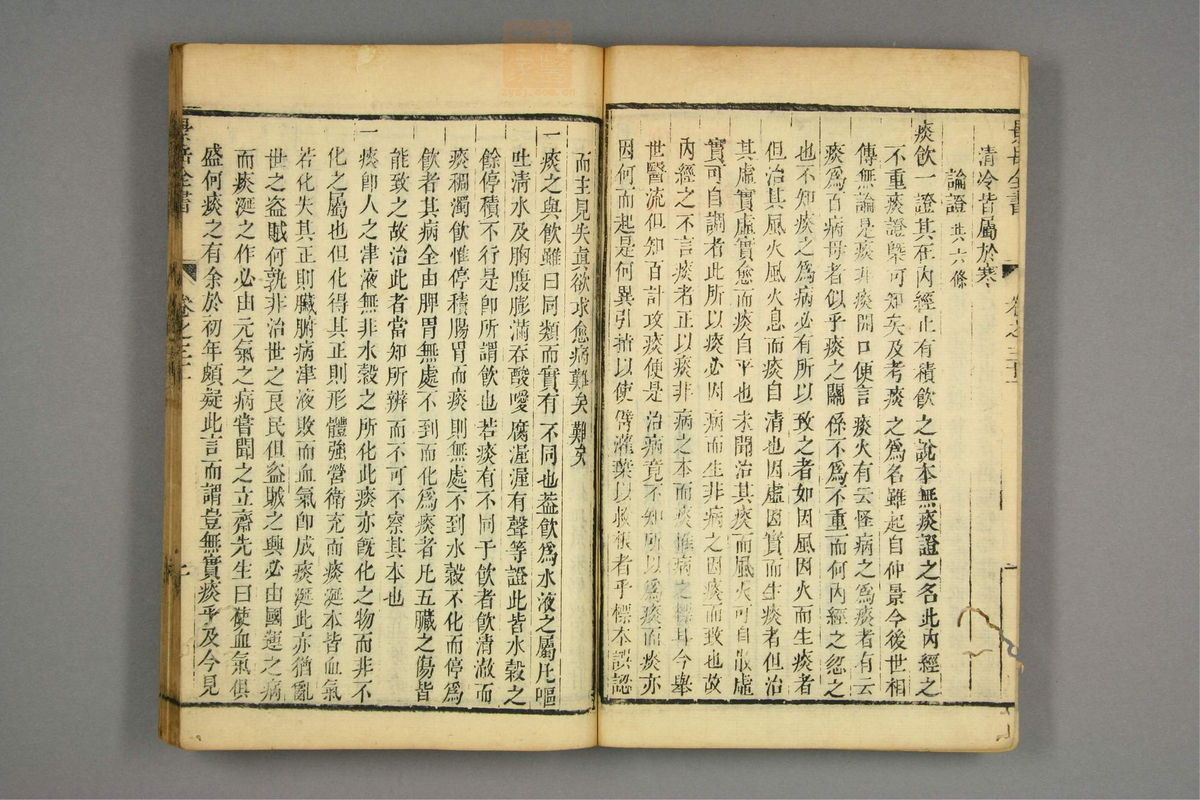 景岳全書 卷之三十一
清冷皆屬於寒
論證 共六條
痰飲一證其在內經止有積飲之說本無痰證之名此內經之
不重痰證槩可知矣及考痰之爲名雖起自仲景今後世相
傳無論是痰非痰開口便言痰火有云怪病之爲痰者有云
痰爲百病母者似乎痰之關係不爲不重而何內經之忽之
也不知痰之爲病必有所以致之者如因風因火而生痰者
但治其風火風火息而痰自清也因虛因實而生痰者但治
其虛實虛實愈而痰自平也未聞治其痰而風火可自散虛
實可自調者此所以痰必因病而生非病之因痰而致也故
內經之不言痰者正以痰非病之本而痰惟病之標耳今舉
世醫流但知百計攻痰便是治病竟不知所以爲痰而痰亦
因何而起是何異引指以使臂灌葉以救根者乎標本誤認
而主見失眞欲求愈病難矣難矣
一痰之與飲雖曰同類而實有不同也葢飲爲水液之屬凡嘔
吐清水及胸腹膨滿吞酸噯腐渥渥有聲等證此皆水穀之
餘停積不行是卽所謂飲也若痰有不同于飲者飲清澈而
痰稠濁飲惟停積腸胃而痰則無處不到水穀不化而停爲
飲者其病全由脾胃無處不到而化爲痰者凡五臟之傷皆
能致之故治此者當知所辨而不可不察其本也
一痰卽人之津液無非水穀之所化此痰亦旣化之物而非不
化之屬也但化得其正則形體強營衛充而痰涎本皆血氣
若化失其正則臟腑病津液敗而血氣卽成痰涎此亦猶亂
世之盜賊何孰非治世之良民但盜賊之興必由國運之病
而痰涎之作必由元氣之病嘗聞之立齋先生曰使血氣俱
盛何痰之有余於初年頗疑此言而謂豈無實痰乎及今見
景岳全書 卷之三十一